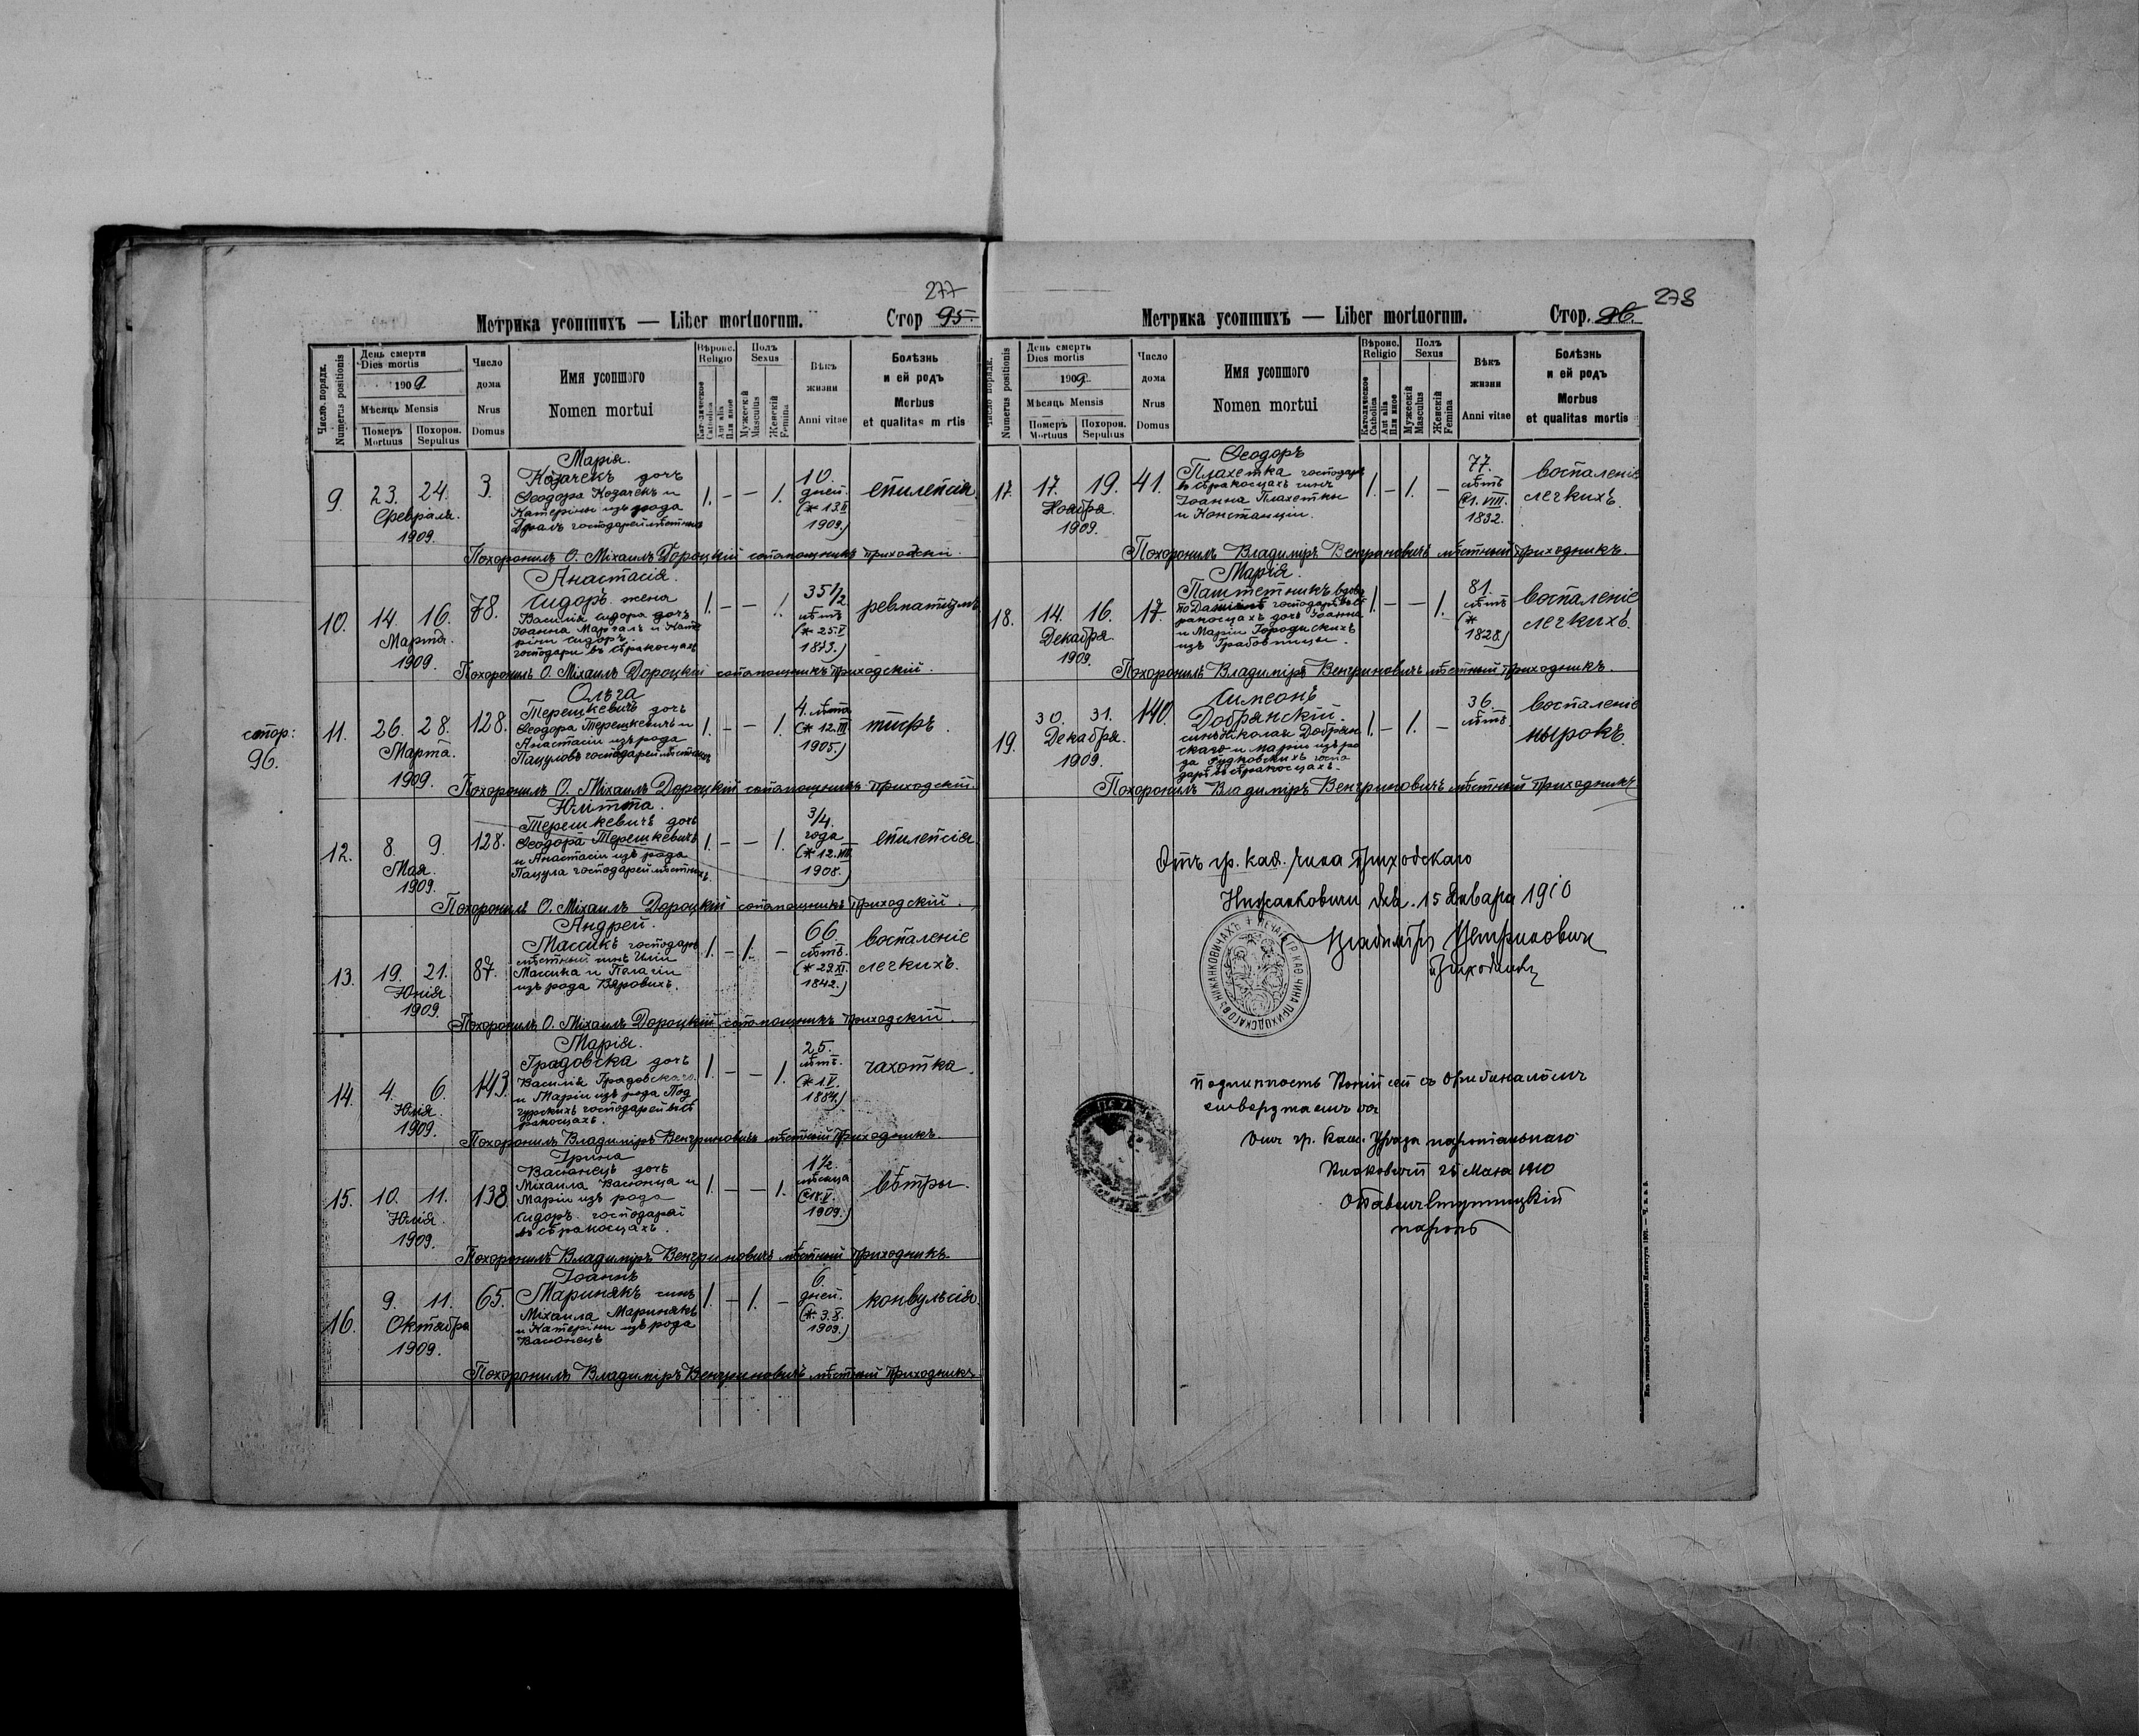 277
Метрика усопшихъ — Liber mortuorum.
Стор 95.
Число порядк.
Numerus positionis
День смерти
Dies mortis
1909.
Мѣсяць Mensis
Померъ
Mortuus
Похорон.
Sepultus
Число
дома
Nrus
Domus
Имя усопшого
Nomen mortui
Вѣроис.
Religio
Католическое
Catholica
Aut alia
Или иное
Полъ
Sexus
Мужескій
Masculus
Женскій
Femina
Вѣкъ
жизни
Anni vitae
Болѣзнь
и ей родъ
Morbus
et qualitas m rtis
9. 23. 24. 3.
Февраля.
1909.
Марія.
Козачекъ дочь
Ѳеодора Козачекъ и
Катеріны изъ рода
господарей мѣстныхъ
1. — — 1.
10.
дней.
(* 13.II
1909.)
епилепсія
Похоронилъ О. Міхаилъ Дороцкій сотпомощникъ приходскій.
10. 14. 16. 78.
Марта.
1909.
Анастасія.
Сидоръ жена
Василія Сидора дочь
Іоанна Маргаль и Кате
ріны Сидоръ.
господари въ
1. — — 1.
35 1/2
лѣтъ
(* 25.I
1873.)
ревматизмъ
Похоронилъ О. Міхаилъ Дороцкій сотпомощникъ приходскій.
стор:
96.
11. 26. 28. 128.
Марта.
1909.
Ольга
Терешкевичъ дочь
Ѳеодора Терешкевичъ и
Анастасіи изъ рода
Пацуловъ господарей мѣстныхъ
1. — — 1.
4. лѣта
(* 12.III
1905.)
тифъ.
Похоронилъ О. Міхаилъ Дороцкій сотпомощникъ приходскій.
12. 8. 9. 128.
Мая.
1909.
Юлитта.
Терешкевичъ дочь
Ѳеодора Терешкевичъ
и Анастасіи изъ рода
Пацула господарей мѣстныхъ.
1. — — 1.
3/4.
года
(* 12.VIII
1908.)
епилепсія
Похоронилъ О. Міхаилъ Дороцкій сотпомощникъ приходскій.
13. 19. 21. 87.
Юнія
1909.
Андрей.
Массикъ господарь
мѣстный сынъ Иліи
Массика и Пелагіи
изъ рода
1. — 1. —
66
лѣтъ.
(* 29.XI.
1842.)
воспаленіе
легкихъ.
Похоронилъ О. Міхаилъ Дороцкій сотпомощникъ приходскій.
14. 4. 6. 143.
Юлія.
1909.
Марія.
Градовска дочь
Василія Градовского
и Маріи изъ рода Под
гурскихъ господарей въ
1. — — 1.
25.
лѣтъ.
(* 1.V.
1884.)
чахотка.
Похоронилъ Владиміръ Венгриновичъ мѣстный приходникъ.
15. 10. 11. 138.
Юлія.
1909.
Ірина
Васюнець дочь
Міхаила Васюнца и
Маріи изъ рода
Сидоръ. господарей
въ
1. — — 1.
1 1/2.
мѣсяца
1909.)
вѣтры.
Похоронилъ Владиміръ Венгриновичъ мѣстный приходникъ.
16. 9. 11. 65.
Октября
1909.
Іоаннъ
Маринякъ сынъ
Міхаила Маринякъ
и Катеріны изъ рода
Васюнець
1. — 1. —
6.
дней.
(* 3.X.
1909.)
конвульсія.
Похоронилъ Владиміръ Венгриновичъ мѣстный приходникъ.
278
Метрика усопшихъ — Liber mortuorum.
Стор. 96.
Число порядк.
Numerus positionis
День смерть
Dies mortis
1909.
Мѣсяць Mensis
Померъ
Mortuus
Похорон.
Sepultus
Число
дома
Nrus
Domus
Имя усопшого
Nomen mortui
Вѣроис.
Religio
Католическое
Catholica
Aut alia
Или иное
Полъ
Sexus
Мужескій
Masculus
Женскій
Femina
Вѣкъ
жизни
Anni vitae
Болѣзнь
и ей родъ
Morbus
et qualitas mortis
17. 17. 19. 41.
Ноября.
1909.
Ѳеодоръ
Плахетка господарь
въ сынъ
Іоанна Плахетки
и Констанціи.
1. — 1. —
77.
лѣтъ
(*1. VIII.
1832.
воспаленіе
легкихъ.
Похоронилъ Владиміръ Венгриновичъ мѣстный приходникъ.
18. 14. 16. 17.
Декабря
1909.
Марія.
Паштетникъ вдова
по господарь
дочь Іоанна
и Маріи Городискихъ
изъ Грабовницы.
1. — — 1.
81.
лѣтъ
(*
1828.)
воспаленіе
легкихъ.
Похоронилъ Владиміръ Венгриновичъ мѣстный приходникъ.
19. 30. 31. 140.
Декабря.
1909.
Симеонъ
Добрянскій.
сынъ Николая Добрян
скаго и Маріи изъ ро
да госпо
дарь въ
1. — 1. —
36.
лѣтъ
воспаленіе
нырокъ.
Похоронилъ Владиміръ Венгриновичъ мѣстный приходникъ
Отъ гр. каѳ. чина приходскаго
Нижанковичи дня. 15 Января 1910
Владиміръ Венгриновичъ
приходникъ
ПЕЧАТЬ ГР. КАѲ. ЧИНА ПРИХОДСКАГО ВЪ НИЖАНКОВИЧАХЪ
подлинность копіи сей съ оригиналомъ
стверджаетъ ся
Отъ гр. кат. Уряда парохіального
25 Мая 1910
парохъ